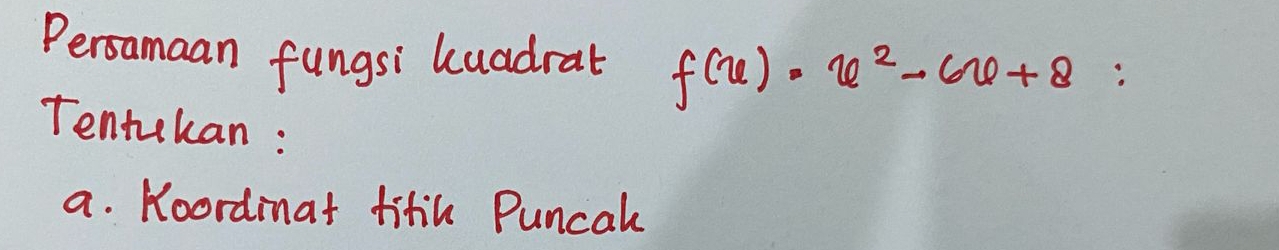 Persamaan fungsi kuadrat f(x) = x² - 6x + 8 :
Tentukan :
a. Koordinat titik Puncak